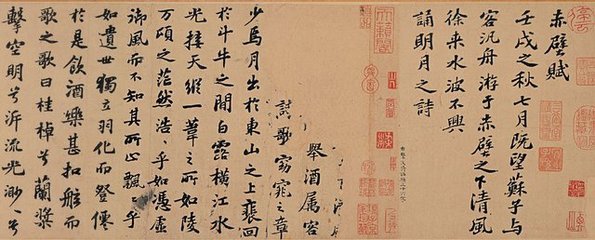 赤壁賦
壬戌之秋七月既望蘇子與
客汎舟游于赤壁之下清風
徐來水波不興
誦明月之詩
舉酒屬客
歌窈窕章
少焉月出於東山之上裴回
於斗牛之間白露橫江水
光接天縱一葦之所如陵
萬頃之茫然浩〻乎如憑虛
御風而不知其所止飄〻乎
如遺世獨立羽化而登僊
於是飲酒樂甚扣舷而
歌之歌曰桂棹兮蘭槳
擊空明兮泝流光渺〻兮